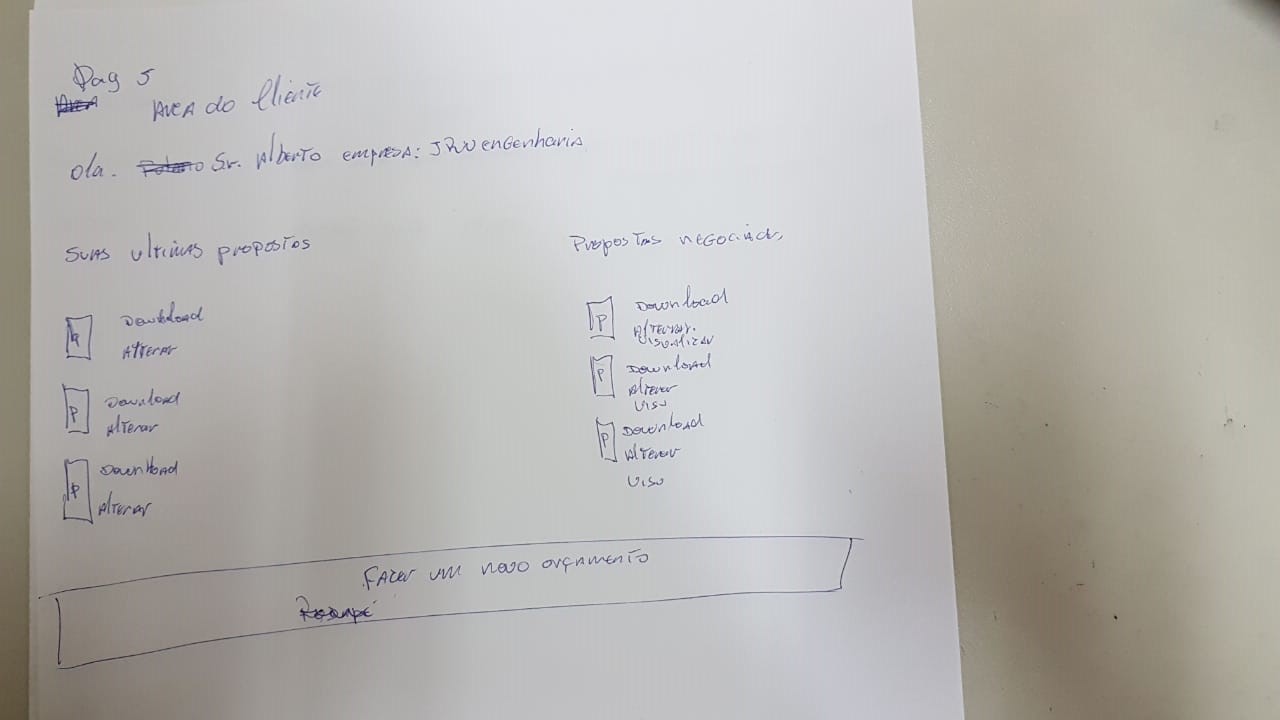 Pag 5
Area do Cliente
Ola. Sr. Alberto empresa: JRW engenharia
Suas ultimas propostas
Propostas negociadas
Download
Alterar
P
Download
Alterar
P
Download
Alterar
P
Download
Alterar.
Visualizar
P
Download
Alterar
Visu
P
Download
Alterar
Visu
Fazer um novo orçamento